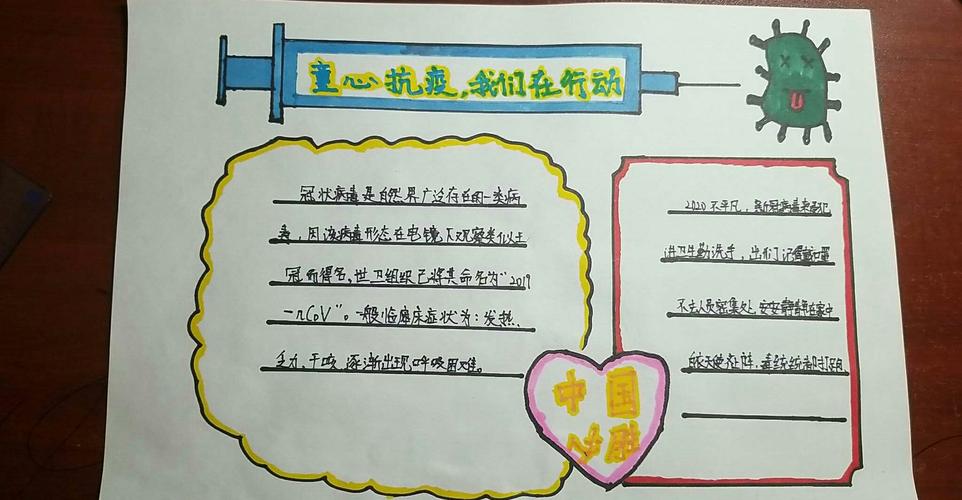 童心抗疫,我们在行动
冠状病毒是自然界广泛存在的一类病
毒,因该病毒形态在电镜下观察类似王
冠而得名,世卫组织已将其命名为“2019
-nCoV”。一般临床症状为:发热、
乏力、干咳、逐渐出现呼吸困难。
2020不平凡,新冠病毒来侵犯
讲卫生勤洗手,出门记得戴口罩
不去人员密集处,安安静静在家中
白衣天使来上阵,毒统统都打
中国
必胜